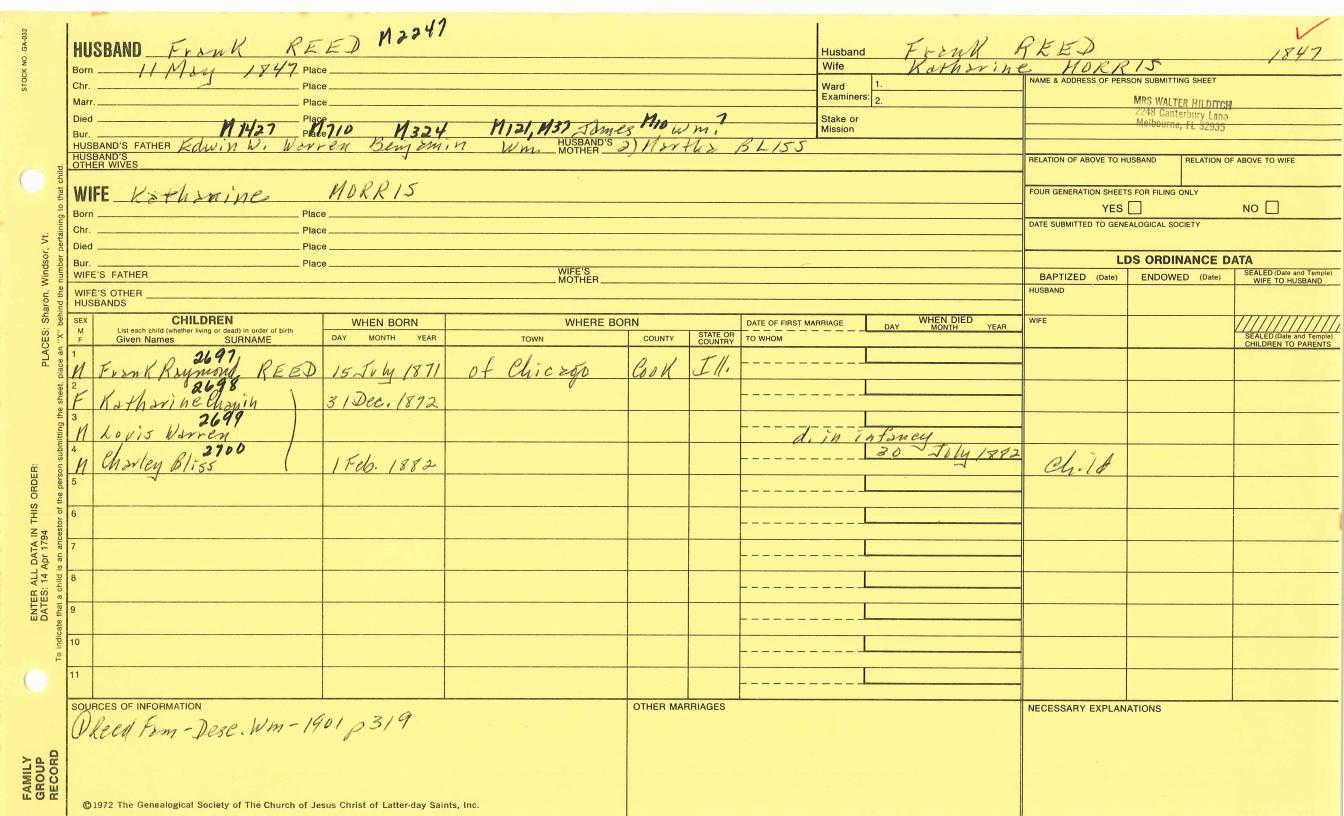 STOCK NO. GA-032
HUSBAND Frank REED M2247
Born 11 May 1847 Place
Chr. Place
Marr. Place
Died Place
Bur. Place
M1427 M710 M324 M121, M37 James M10 Wm. ?
HUSBAND'S FATHER Edwin W. Warren Benjamin Wm. HUSBAND'S MOTHER 2) Martha BLISS
HUSBAND'S OTHER WIVES
Husband Frank REED 1847
Wife Katharine MORRIS
Ward Examiners: 1.
2.
Stake or Mission
NAME & ADDRESS OF PERSON SUBMITTING SHEET
MRS WALTER HILDITCH
2248 Canterbury Lane
Melbourne, FL 32935
RELATION OF ABOVE TO HUSBAND RELATION OF ABOVE TO WIFE
FOUR GENERATION SHEETS FOR FILING ONLY
YES NO
DATE SUBMITTED TO GENEALOGICAL SOCIETY
WIFE Katharine MORRIS
Born Place
Chr. Place
Died Place
Bur. Place
WIFE'S FATHER WIFE'S MOTHER
WIFE'S OTHER HUSBANDS
LDS ORDINANCE DATA
BAPTIZED (Date) ENDOWED (Date) SEALED (Date and Temple) WIFE TO HUSBAND
HUSBAND
WIFE
SEALED (Date and Temple) CHILDREN TO PARENTS
SEX M F
CHILDREN
List each child (whether living or dead) in order of birth
Given Names SURNAME
WHEN BORN
DAY MONTH YEAR
WHERE BORN
TOWN COUNTY STATE OR COUNTRY
DATE OF FIRST MARRIAGE
TO WHOM
WHEN DIED
DAY MONTH YEAR
2697
1 M Frank Raymond REED 15 July 1871 of Chicago Cook Ill.
2698
2 F Katharine Chapin 31 Dec. 1872
2699
3 M Louis Warren d. in infancy
2700
4 M Charley Bliss 1 Feb. 1882 30 July 1882 Child
5
6
7
8
9
10
11
SOURCES OF INFORMATION
① Reed Fam - Desc. Wm - 1901 p319
OTHER MARRIAGES
NECESSARY EXPLANATIONS
©1972 The Genealogical Society of The Church of Jesus Christ of Latter-day Saints, Inc.
PLACES: Sharon, Windsor, Vt.
ENTER ALL DATA IN THIS ORDER:
DATES: 14 Apr 1794
To indicate that a child is an ancestor of the person submitting the sheet, place an "X" behind the number pertaining to that child.
FAMILY GROUP RECORD